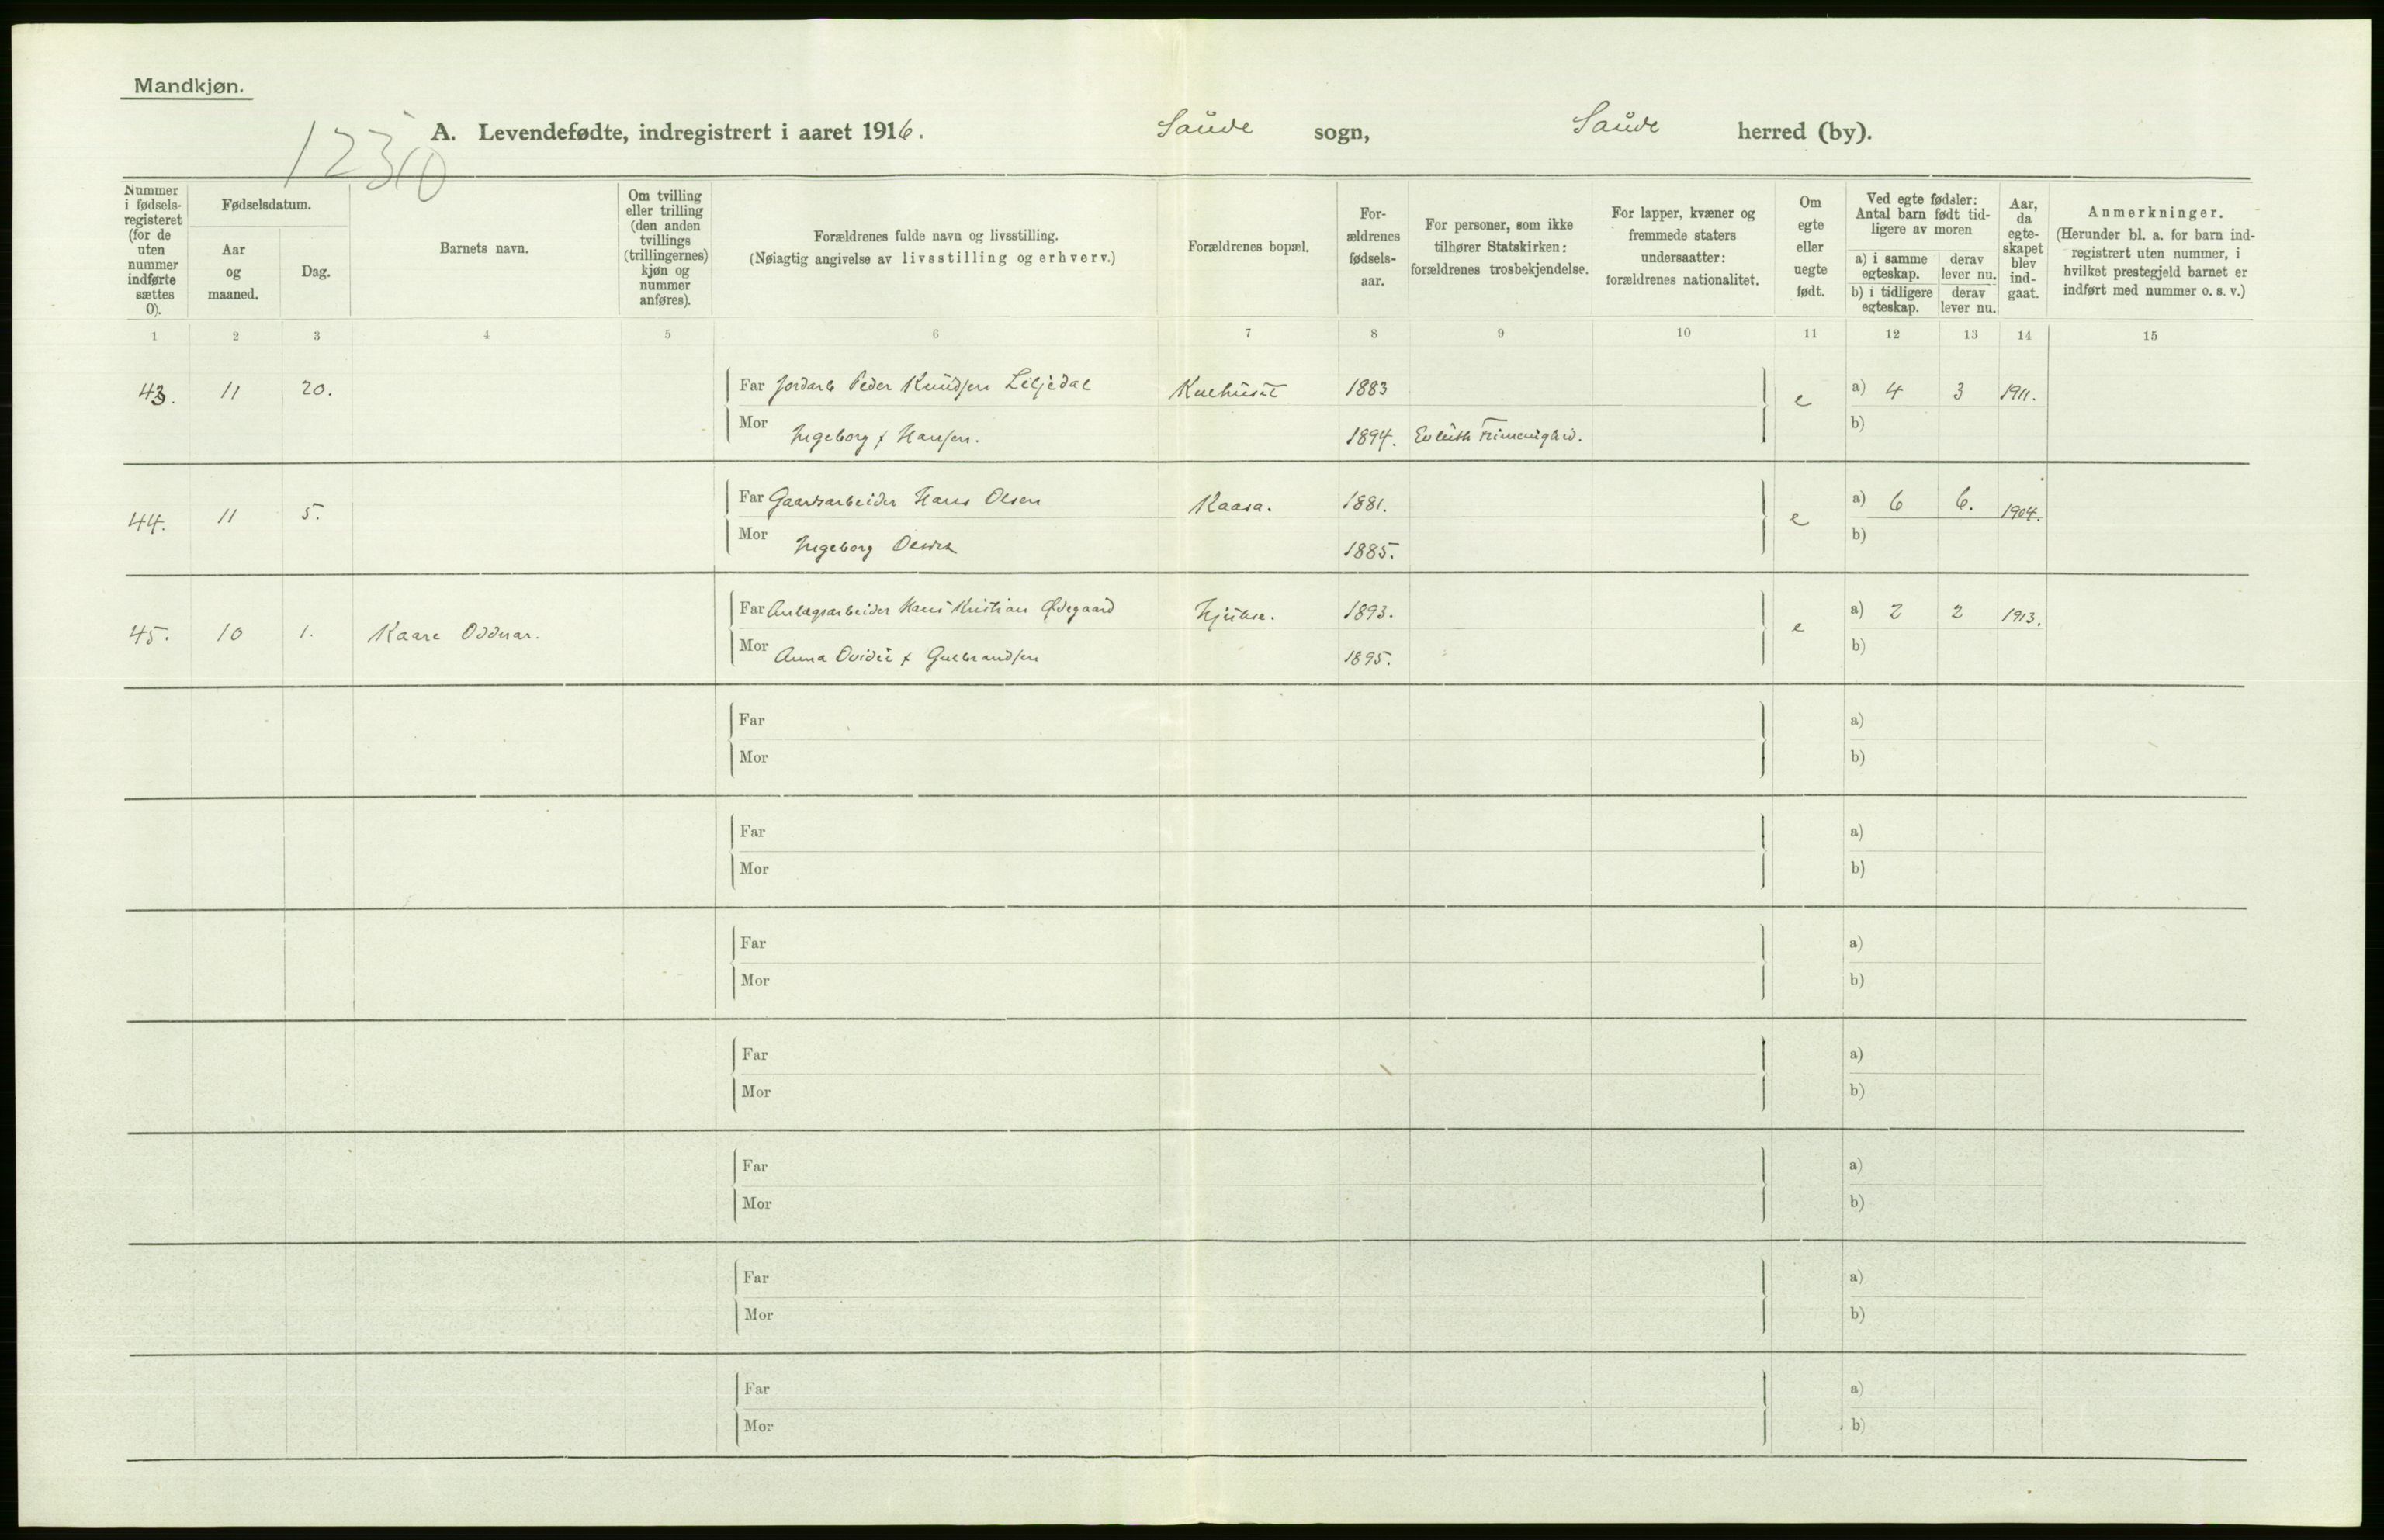 Mandkjøn.
A. Levendefødte, indregistrert i aaret 1916. Saude sogn, Saude herred (by).
Nummer i fødsels-registeret (for de uten nummer indførte sættes 0).
Fødselsdatum.
Aar og maaned.
Dag.
Barnets navn.
Om tvilling eller trilling (den anden tvillings (trillingernes) kjøn og nummer anføres).
Forældrenes fulde navn og livsstilling.
(Nøiagtig angivelse av livsstilling og erhverv.)
Forældrenes bopæl.
For-ældrenes fødsels-aar.
For personer, som ikke tilhører Statskirken: forældrenes trosbekjendelse.
For lapper, kvæner og fremmede staters undersaatter: forældrenes nationalitet.
Om egte eller uegte født.
Ved egte fødsler: Antal barn født tid-ligere av moren
a) i samme egteskap.
derav lever nu.
b) i tidligere egteskap.
derav lever nu.
Aar, da egte-skapet blev ind-gaat.
Anmerkninger.
(Herunder bl. a. for barn ind-registrert uten nummer, i hvilket prestegjeld barnet er indført med nummer o. s. v.)
1 2 3 4 5 6 7 8 9 10 11 12 13 14 15
43. 11 20. Far Jordarb Peder Knudsen Liljedal 1883 e a) 4 3 1911.
Mor Ingeborg f Hansen. 1894. b)
44. 11 5. Far Gaardsarbeider Hans Olsen Kaasa. 1881. e a) 6 6. 1904.
Mor Ingeborg 1885. b)
45. 10 1. Kaare Oddvar. Far Anlægsarbeider Hans Kristian Ødegaard Hjukse. 1893. e a) 2 2 1913.
Mor Anna Ovidie f Gulbrandsen 1895. b)
Far a)
Mor b)
Far a)
Mor b)
Far a)
Mor b)
Far a)
Mor b)
Far a)
Mor b)
Far a)
Mor b)
Far a)
Mor b)